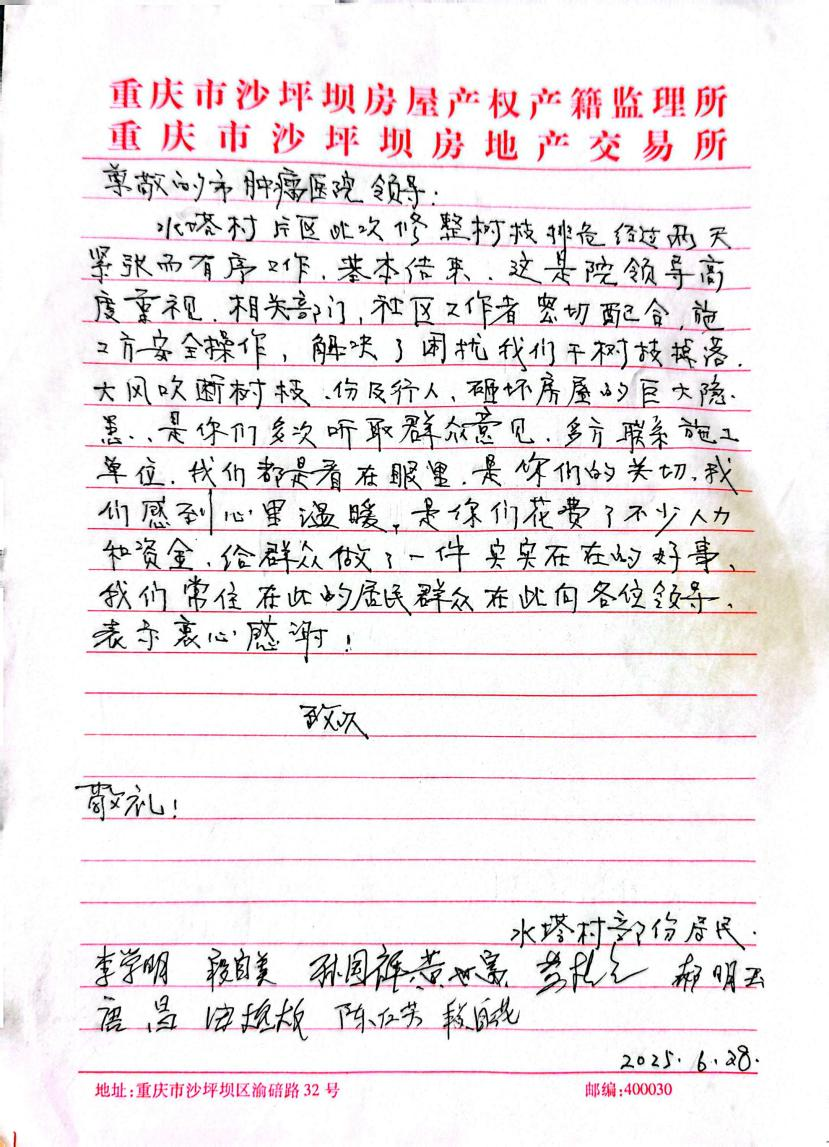 重庆市沙坪坝房屋产权产籍监理所
重庆市沙坪坝房地产交易所
尊敬的市肿瘤医院领导：
水塔村片区此次修整树枝排危经过两天
紧张而有序工作，基本结束，这是院领导高
度重视，相关部门，社区工作者密切配合，施
工方安全操作，解决了困扰我们干树枝掉落，
大风吹断树枝、份及行人、砸坏房屋的巨大隐
患，是你们多次听取群众意见，多方联系施工
单位，我们都是看在眼里，是你们的关切，我
们感到心里温暖，是你们花费了不少人力
和资金，给群众做了一件实实在在的好事，
我们常住在此的居民群众在此向各位领导，
表示衷心感谢！
致以
敬礼！
水塔村部份居民.
李学明 孙国辉 郝明玉
唐昌 陈仁芳
2025.6.28.
地址:重庆市沙坪坝区渝碚路32号 邮编:400030